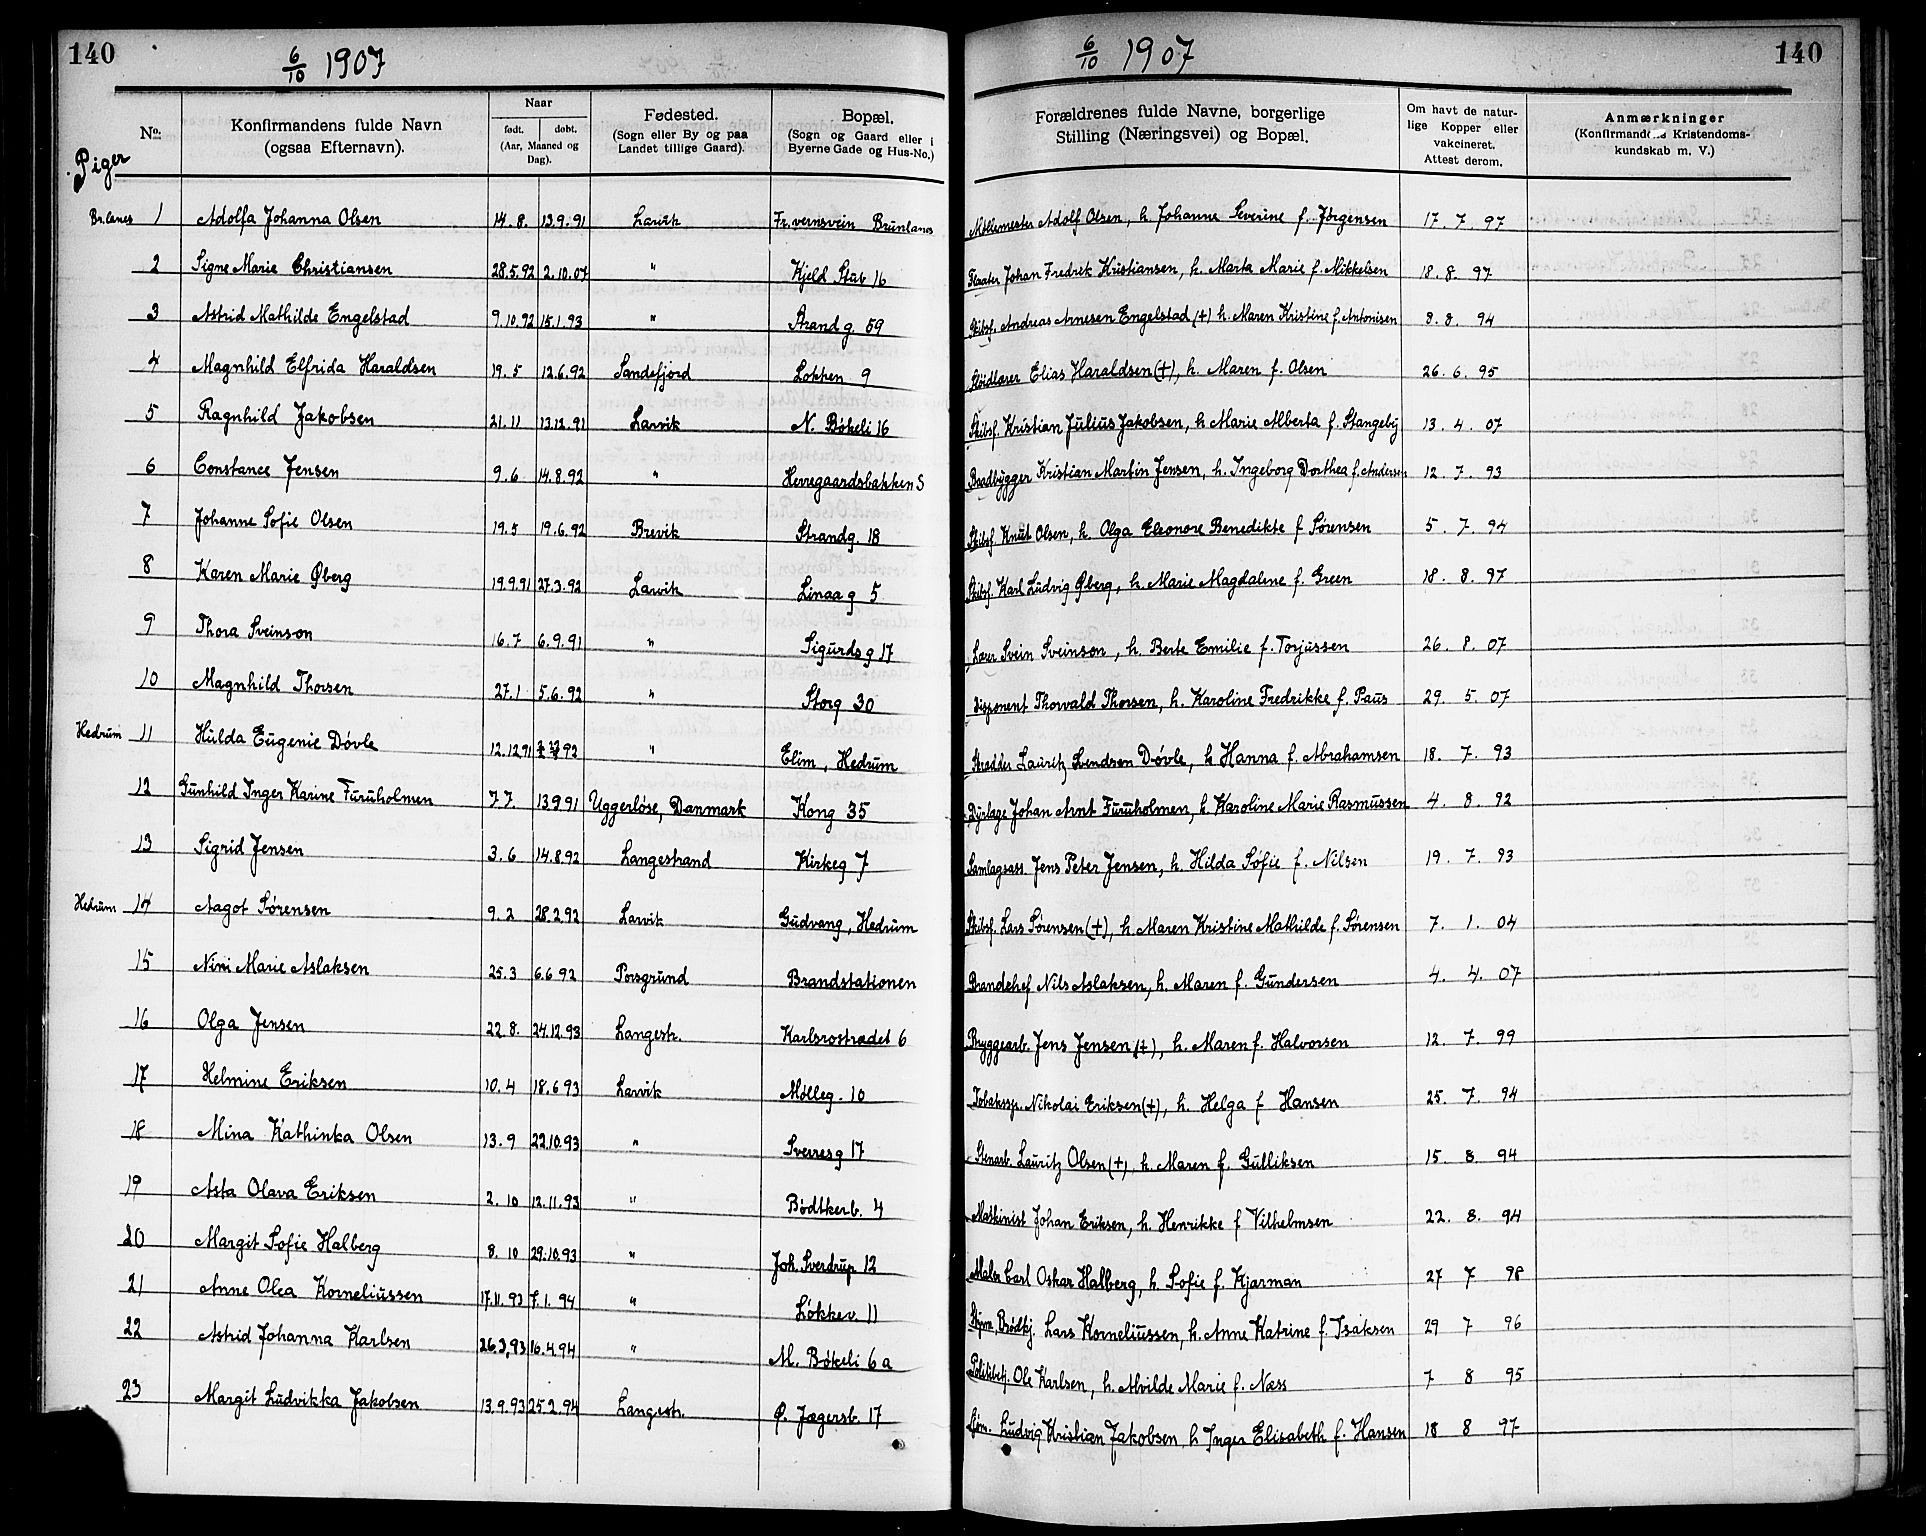 140
6/10 1907
6/10 1907
140
No.
Konfirmandens fulde Navn (ogsaa Efternavn).
Naar
født. døbt.
(Aar, Maaned og Dag).
Fødested.
(Sogn eller By og paa Landet tillige Gaard).
Bopæl.
(Sogn og Gaard eller i Byerne Gade og Hus-No.)
Forældrenes fulde Navne, borgerlige Stilling (Næringsvei) og Bopæl.
Om havt de naturlige Kopper eller vakcineret. Attest derom.
Anmærkninger
(Konfirmandens Kristendomskundskab m. V.)
Piger
Br.lanes 1 Adolfa Johanna Olsen 14.8. 13.9.91 Larvik Fr.vernsvein Brunlanes Møllemester Adolf Olsen, h. Johanne Severine f. Jørgensen 17. 7. 97
2 Signe Marie Christiansen 28.5.92 2.10.07 " Kjeld Stub 16 Johan Fredrik Kristiansen, h. Marta Marie f. Mikkelsen 18. 8. 97
3 Astrid Mathilde Engelstad 9.10.92 15.1.93 " Strandg. 59 Skibsf. Andreas Arnesen Engelstad (+) h. Maren Kristine f. Antonisen 8. 8. 94
4 Magnhild Elfrida Haraldsen 19.5 12.6.92 Sandefjord Lokken 9 Sløidlærer Elias Haraldsen (+), h. Maren f. Olsen 26. 6. 95
5 Ragnhild Jakobsen 21.11 13.12.91 Larvik N. Bøkeli 16 Skibsf. Kristian Julius Jakobsen, h. Marie Alberta f. Stangeby 13. 4. 07
6 Constance Jensen 9.6 14.8.92 " Herregaardsbakken 5 Baadbygger Kristian Martin Jensen, h. Ingeborg Dorthea f. Andersen 12. 7. 93
7 Johanne Sofie Olsen 19.5 19.6.92 Brevik Strandg. 18 Skibsf. Knut Olsen, h. Olga Eleonore Benedikte f Sørensen 5. 7. 94
8 Karen Marie Øberg 19.9.91 27.3.92 Larvik Linaag 5 Skibsf. Karl Ludvig Øberg, h. Marie Magdalene f. Green 18. 8. 97
9 Thora Sveinson 16.7 6.9.91 " Sigurdsg 17 Lærer Svein Sveinson, h. Berte Emilie f. Torjussen 26. 8. 07
10 Magnhild Thorsen 27.1 5.6.92 " Storg 30 Disponent Thorvald Thorsen, h. Karoline Fredrikke f. Paus 29. 5. 07
Hedrum 11 Hulda Eugenie Døvle 12.12.91 92 " Elim, Hedrum Skrædder Lauritz Svendsen Døvle, h Hanna f. Abrahamsen 18. 7. 93
12 Gunhild Inger Karine Furuholmen 7.7 13.9.91 Uggerløse, Danmark Kong 35 Dyrlæge Johan Arnt Furuholmen, h. Karoline Marie Rasmussen 4. 8. 92
13 Sigrid Jensen 3.6 14.8.92 Langestrand Kirkeg 7 Samlagsass. Jens Peter Jensen, h. Hilda Sofie f. Nilsen 19. 7. 93
Hedrum 14 Aagot Sørensen 9.2 28.2.92 Larvik Gudvang, Hedrum Skibsf. Lars Sørensen (+), h. Maren Kristine Mathilde f. Sørensen 7. 1. 04
15 Nini Marie Aslaksen 25.3 6.6.92 Porsgrund Brandstationen Brandchef Nils Aslaksen, h. Maren f. Gundersen 4. 4. 07
16 Olga Jensen 22.8. 24.12.93 Langestr. Karlsrostrædet 6 Bryggearb. Jens Jensen (+), h. Maren f. Halvorsen 12. 7. 99
17 Helmine Eriksen 10.4 18.6.93 Larvik Mølleg. 10 Tobakssp. Nikolai Eriksen (+), h. Helga f Hansen 25. 7. 94
18 Mina Kathinka Olsen 13.9 22.10.93 " Sverresg 17 Stenarb. Lauritz Olsen (+), h. Maren f. Gulliksen 15. 8. 94
19 Asta Olava Eriksen 2.10 12.11.93 " Bødtkerb. 4 Maskinist Johan Eriksen, h. Henrikke f Vilhelmsen 22. 8. 94
20 Margit Sofie Halberg 8.10 29.10.93 " Joh. Sverdrup 12 Maler Carl Oskar Halberg, h. Sofie f. Kjarman 27 7 98
21 Anne Olea Korneliussen 17.11.93 7.1.94 " Løkkev. 11 Brødkj. Lars Korneliussen, h. Anne Katrine f. Isaksen 29 7 96
22 Astrid Johanna Karlsen 26.3.93 16.4.94 " M. Bøkeli 6a Politibetj. Ole Karlsen, h. Alvilde Marie f. Næss 7 8 95
23 Margit Ludvikka Jakobsen 13.9.93 25.2.94 Langestr. Ø. Jægersb. 17 Sjøm. Ludvig Kristian Jakobsen, h Inger Elisabeth f. Hansen 18 8 97